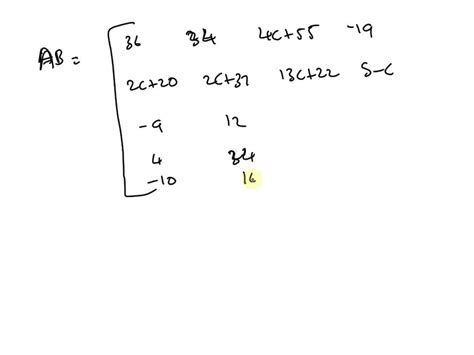 AB = 36 34 4c+55 -19
2c+20 2c+37 13c+22 5-c
-9 12
4 34
-10 16